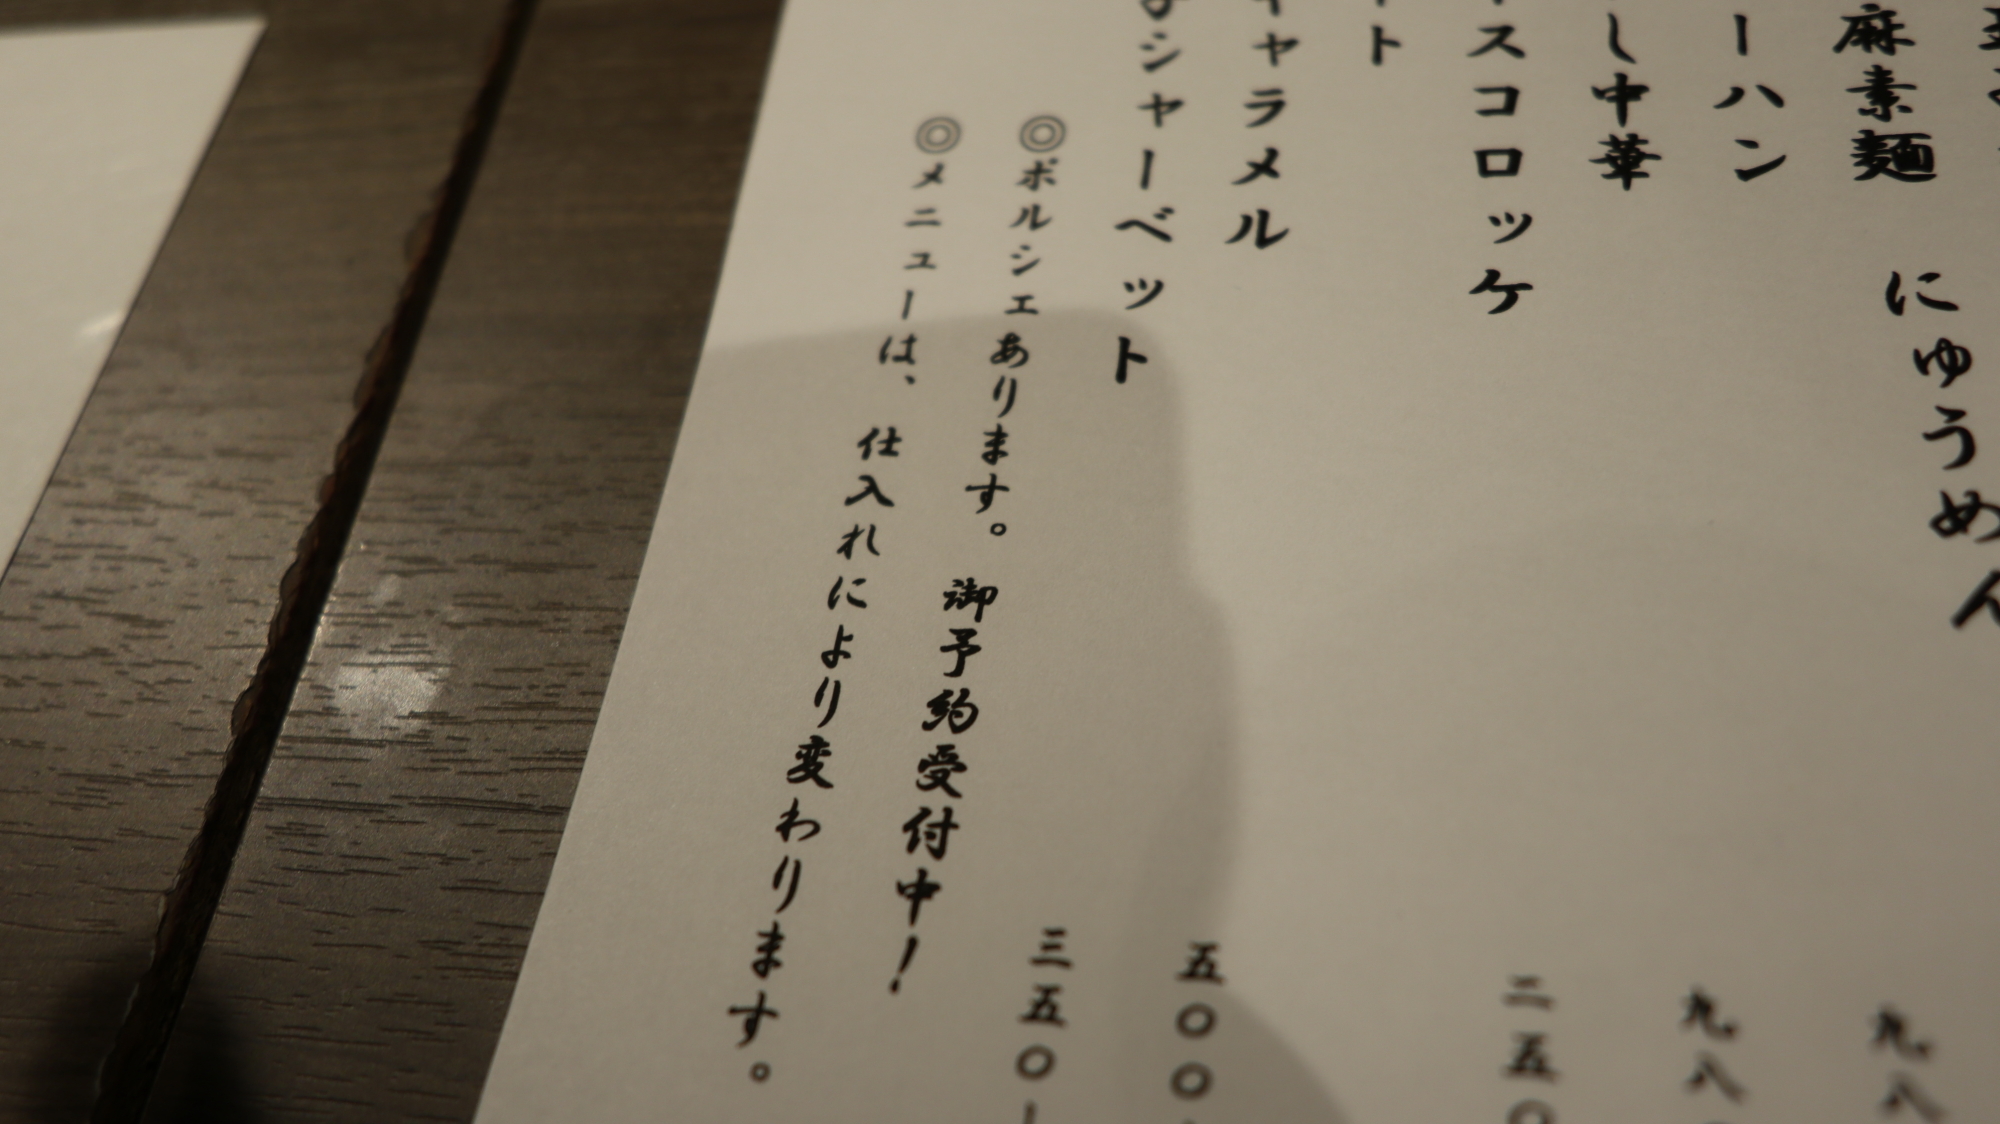 麻素麺　にゅうめん
ーハン
し中華
スコロッケ
ト
キャラメル
シャーベット
◎ポルシェあります。　御予約受付中！
◎メニューは、　仕入れにより変わります。
九八
九八
二五〇
五〇〇
三五〇